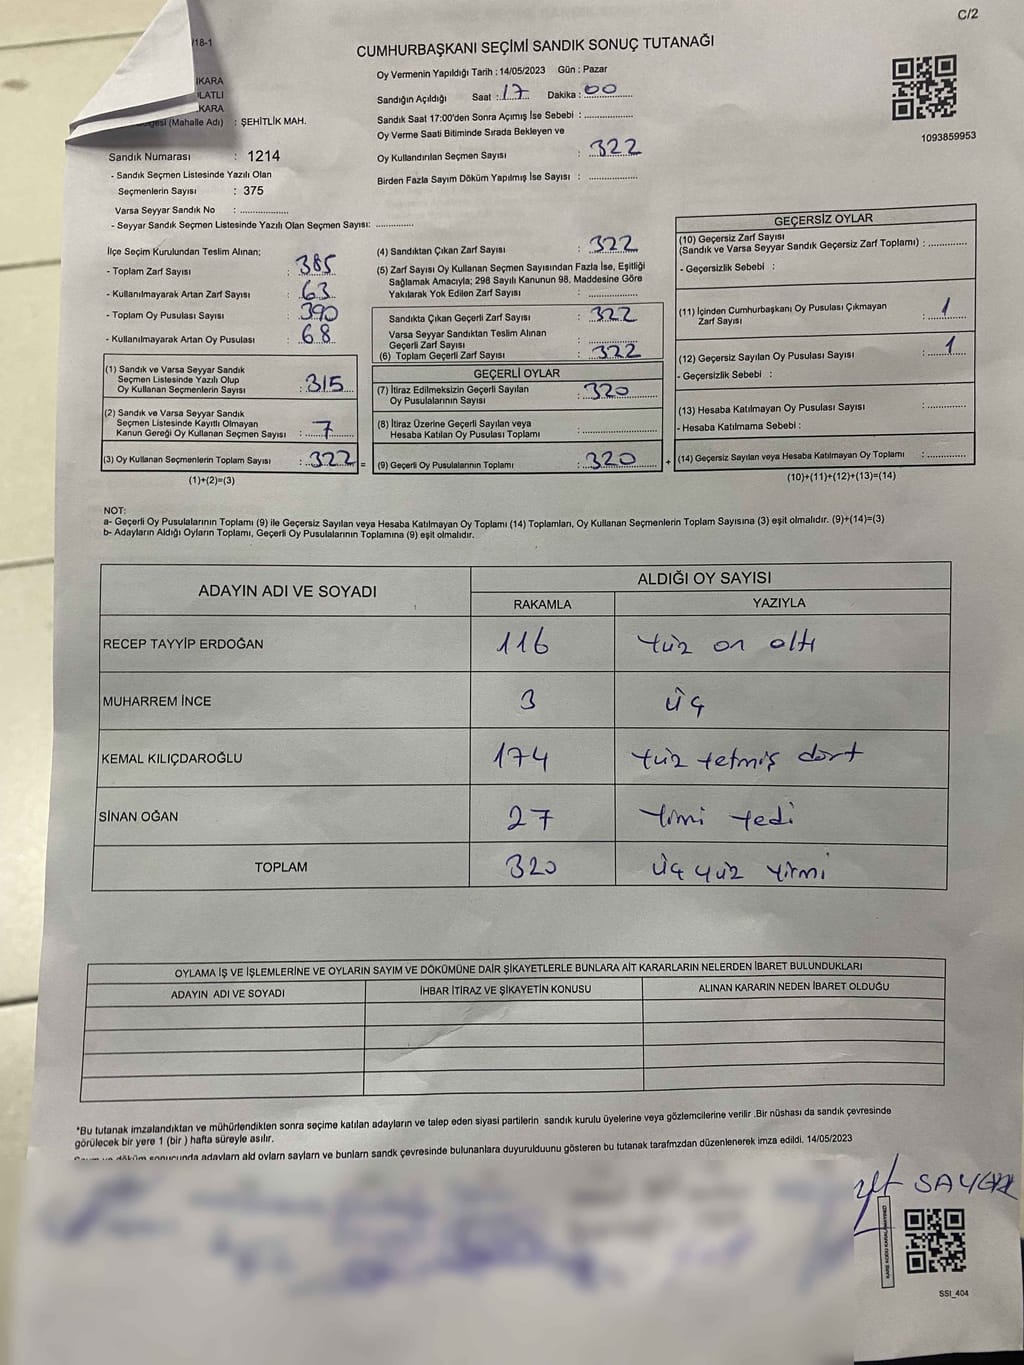 C/2
/18-1
CUMHURBAŞKANI SEÇİMİ SANDIK SONUÇ TUTANAĞI
Oy Vermenin Yapıldığı Tarih : 14/05/2023 Gün : Pazar
Sandığın Açıldığı Saat : 17 Dakika : 00
Sandık Saat 17:00'den Sonra Açımış İse Sebebi : ..............
Oy Verme Saati Bitiminde Sırada Bekleyen ve
Oy Kullandırılan Seçmen Sayısı : 322
Birden Fazla Sayım Döküm Yapılmış İse Sayısı : ..............
1093859953
IKARA
LATLI
KARA
(Mahalle Adı) : ŞEHİTLİK MAH.
Sandık Numarası : 1214
- Sandık Seçmen Listesinde Yazılı Olan
Seçmenlerin Sayısı : 375
Varsa Seyyar Sandık No : ..............
- Seyyar Sandık Seçmen Listesinde Yazılı Olan Seçmen Sayısı: ..............
İlçe Seçim Kurulundan Teslim Alınan;
- Toplam Zarf Sayısı : 385
- Kullanılmayarak Artan Zarf Sayısı : 63
- Toplam Oy Pusulası Sayısı : 390
- Kullanılmayarak Artan Oy Pusulası : 68
(1) Sandık ve Varsa Seyyar Sandık
Seçmen Listesinde Yazılı Olup
Oy Kullanan Seçmenlerin Sayısı : 315
(2) Sandık ve Varsa Seyyar Sandık
Seçmen Listesinde Kayıtlı Olmayan
Kanun Gereği Oy Kullanan Seçmen Sayısı : 7
(3) Oy Kullanan Seçmenlerin Toplam Sayısı : 322 =
(1)+(2)=(3)
(4) Sandıktan Çıkan Zarf Sayısı : 322
(5) Zarf Sayısı Oy Kullanan Seçmen Sayısından Fazla İse, Eşitliği
Sağlamak Amacıyla; 298 Sayılı Kanunun 98. Maddesine Göre
Yakılarak Yok Edilen Zarf Sayısı : ..............
Sandıkta Çıkan Geçerli Zarf Sayısı : 322
Varsa Seyyar Sandıktan Teslim Alınan
Geçerli Zarf Sayısı : ..............
(6) Toplam Geçerli Zarf Sayısı : 322
GEÇERLİ OYLAR
(7) İtiraz Edilmeksizin Geçerli Sayılan
Oy Pusulalarının Sayısı : 320
(8) İtiraz Üzerine Geçerli Sayılan veya
Hesaba Katılan Oy Pusulası Toplamı : ..............
(9) Geçerli Oy Pusulalarının Toplamı : 320 +
GEÇERSİZ OYLAR
(10) Geçersiz Zarf Sayısı
(Sandık ve Varsa Seyyar Sandık Geçersiz Zarf Toplamı) : ..............
- Geçersizlik Sebebi :
(11) İçinden Cumhurbaşkanı Oy Pusulası Çıkmayan
Zarf Sayısı : 1
(12) Geçersiz Sayılan Oy Pusulası Sayısı : 1
- Geçersizlik Sebebi :
(13) Hesaba Katılmayan Oy Pusulası Sayısı : ..............
- Hesaba Katılmama Sebebi :
(14) Geçersiz Sayılan veya Hesaba Katılmayan Oy Toplamı : ..............
(10)+(11)+(12)+(13)=(14)
NOT:
a- Geçerli Oy Pusulalarının Toplamı (9) ile Geçersiz Sayılan veya Hesaba Katılmayan Oy Toplamı (14) Toplamları, Oy Kullanan Seçmenlerin Toplam Sayısına (3) eşit olmalıdır. (9)+(14)=(3)
b- Adayların Aldığı Oyların Toplamı, Geçerli Oy Pusulalarının Toplamına (9) eşit olmalıdır.
ADAYIN ADI VE SOYADI ALDIĞI OY SAYISI
RAKAMLA YAZIYLA
RECEP TAYYİP ERDOĞAN 116 Yüz on altı
MUHARREM İNCE 3 üç
KEMAL KILIÇDAROĞLU 174 Yüz Yetmiş dört
SİNAN OĞAN 27 Yirmi Yedi
TOPLAM 320 üç yüz yirmi
OYLAMA İŞ VE İŞLEMLERİNE VE OYLARIN SAYIM VE DÖKÜMÜNE DAİR ŞİKAYETLERLE BUNLARA AİT KARARLARIN NELERDEN İBARET BULUNDUKLARI
ADAYIN ADI VE SOYADI İHBAR İTİRAZ VE ŞİKAYETİN KONUSU ALINAN KARARIN NEDEN İBARET OLDUĞU
*Bu tutanak imzalandıktan ve mühürlendikten sonra seçime katılan adayların ve talep eden siyasi partilerin sandık kurulu üyelerine veya gözlemcilerine verilir .Bir nüshası da sandık çevresinde
görülecek bir yere 1 (bir ) hafta süreyle asılır.
döküm sonucunda adayların ald oyların sayların ve bunların sandk çevresinde bulunanlara duyurulduunu gösteren bu tutanak tarafmzdan düzenlenerek imza edildi. 14/05/2023
SSI_404